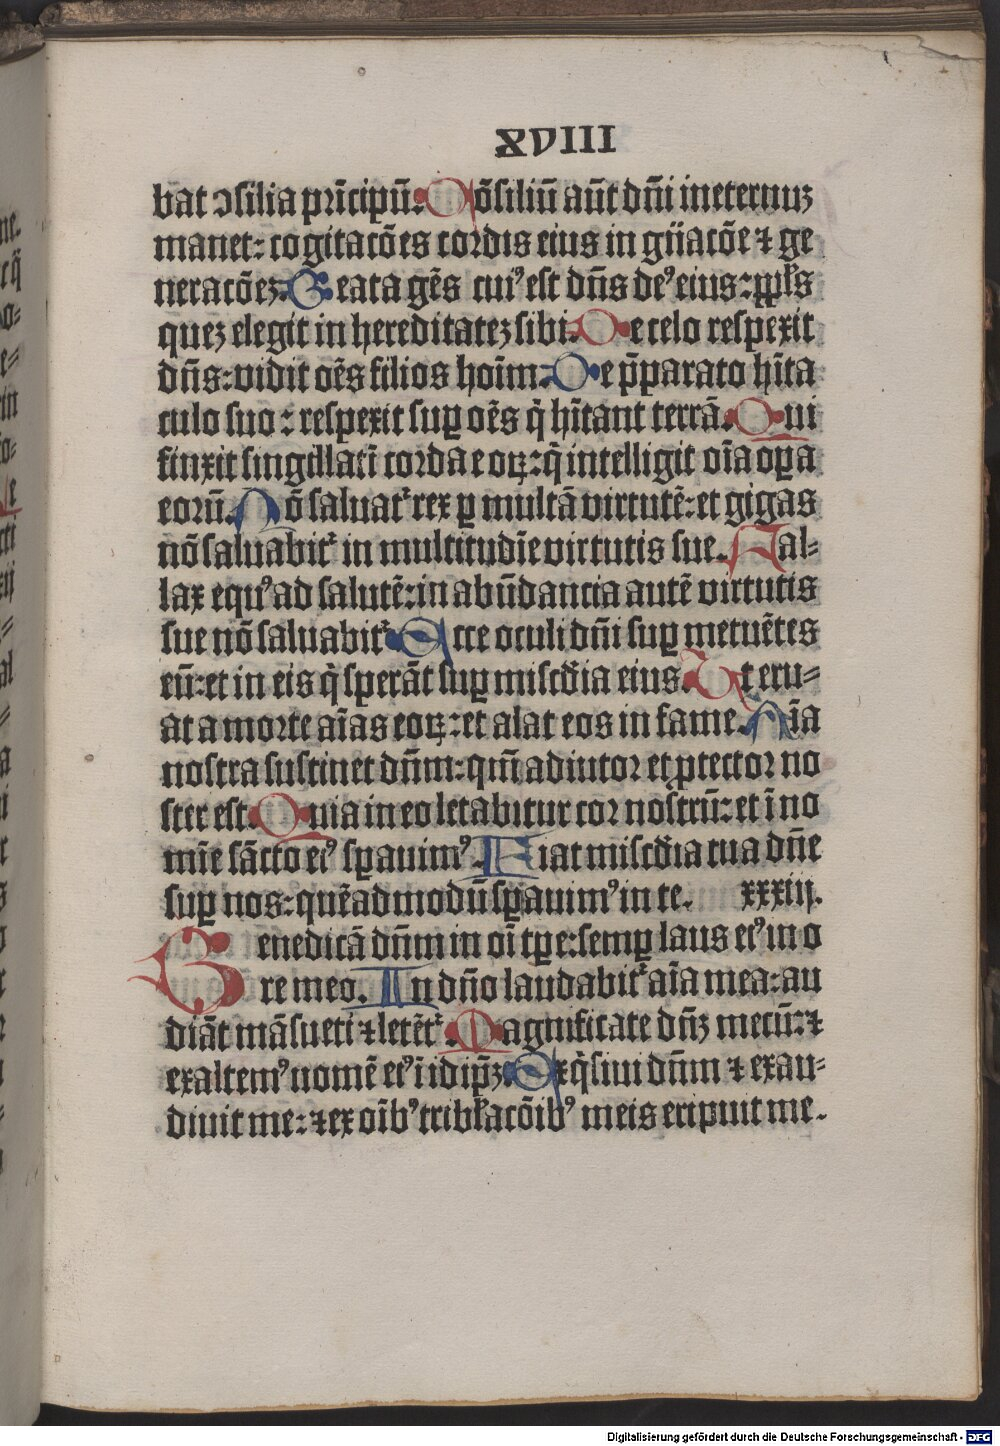 XVIII
bat ↄsilia prīcipū. Cōsiliū aūt dn̄i ineternuʒ
manet: cogitacōes cordis eius in gn̄acōe ⁊ ge
neracōeʒ. Beata gēs cuiꝰ est dn̄s deꝰ eius: ppl̄s
queʒ elegit in hereditateʒ sibi. De celo respexit
dn̄s: vidit oēs filios hoīm. De p̄parato hīta
culo suo: respexit suꝑ oēs q̄ hītant terrā. Qui
finxit singillatī corda eoꝝ: q̄ intelligit oīa oꝑa
eorū. Nō saluatᷣ rex ꝑ multā virtutē: et gigas
nō saluabitᷣ in multitudīe virtutis sue. Fal⸗
lax equꝰ ad salutē: in abūdancia autē virtutis
sue nō saluabitᷣ. Ecce oculi dn̄i suꝑ metuētes
eū: et in eis q̄ sperāt suꝑ miscd̄ia eius. Ut eru⸗
at a morte aīas eoꝝ: et alat eos in fame. Aīa
nostra sustinet dn̄m: qm̄ adiutor et ꝓtector no
ster est. Quia in eo letabitur cor nostrū: et ī no
mīe sācto eiꝰ sꝑauimꝰ. Fiat miscd̄ia tua dn̄e
suꝑ nos: quēadmodū sꝑauimꝰ in te. xxxiij.
Benedicā dn̄m in oī tꝑe: semꝑ laus eiꝰ in o
re meo. In dn̄o laudabitᷣ aīa mea: au
diāt māsueti ⁊ letētᷣ. Magnificate dn̄ʒ mecū: ⁊
exaltemꝰ nomē eiꝰ ī idip̄ʒ. Exq̄siui dn̄m ⁊ exau⸗
diuit me: ⁊ ex oībꝰ tribl̄acōibꝰ meis eripuit me.
Digitalisierung gefördert durch die Deutsche Forschungsgemeinschaft - DFG